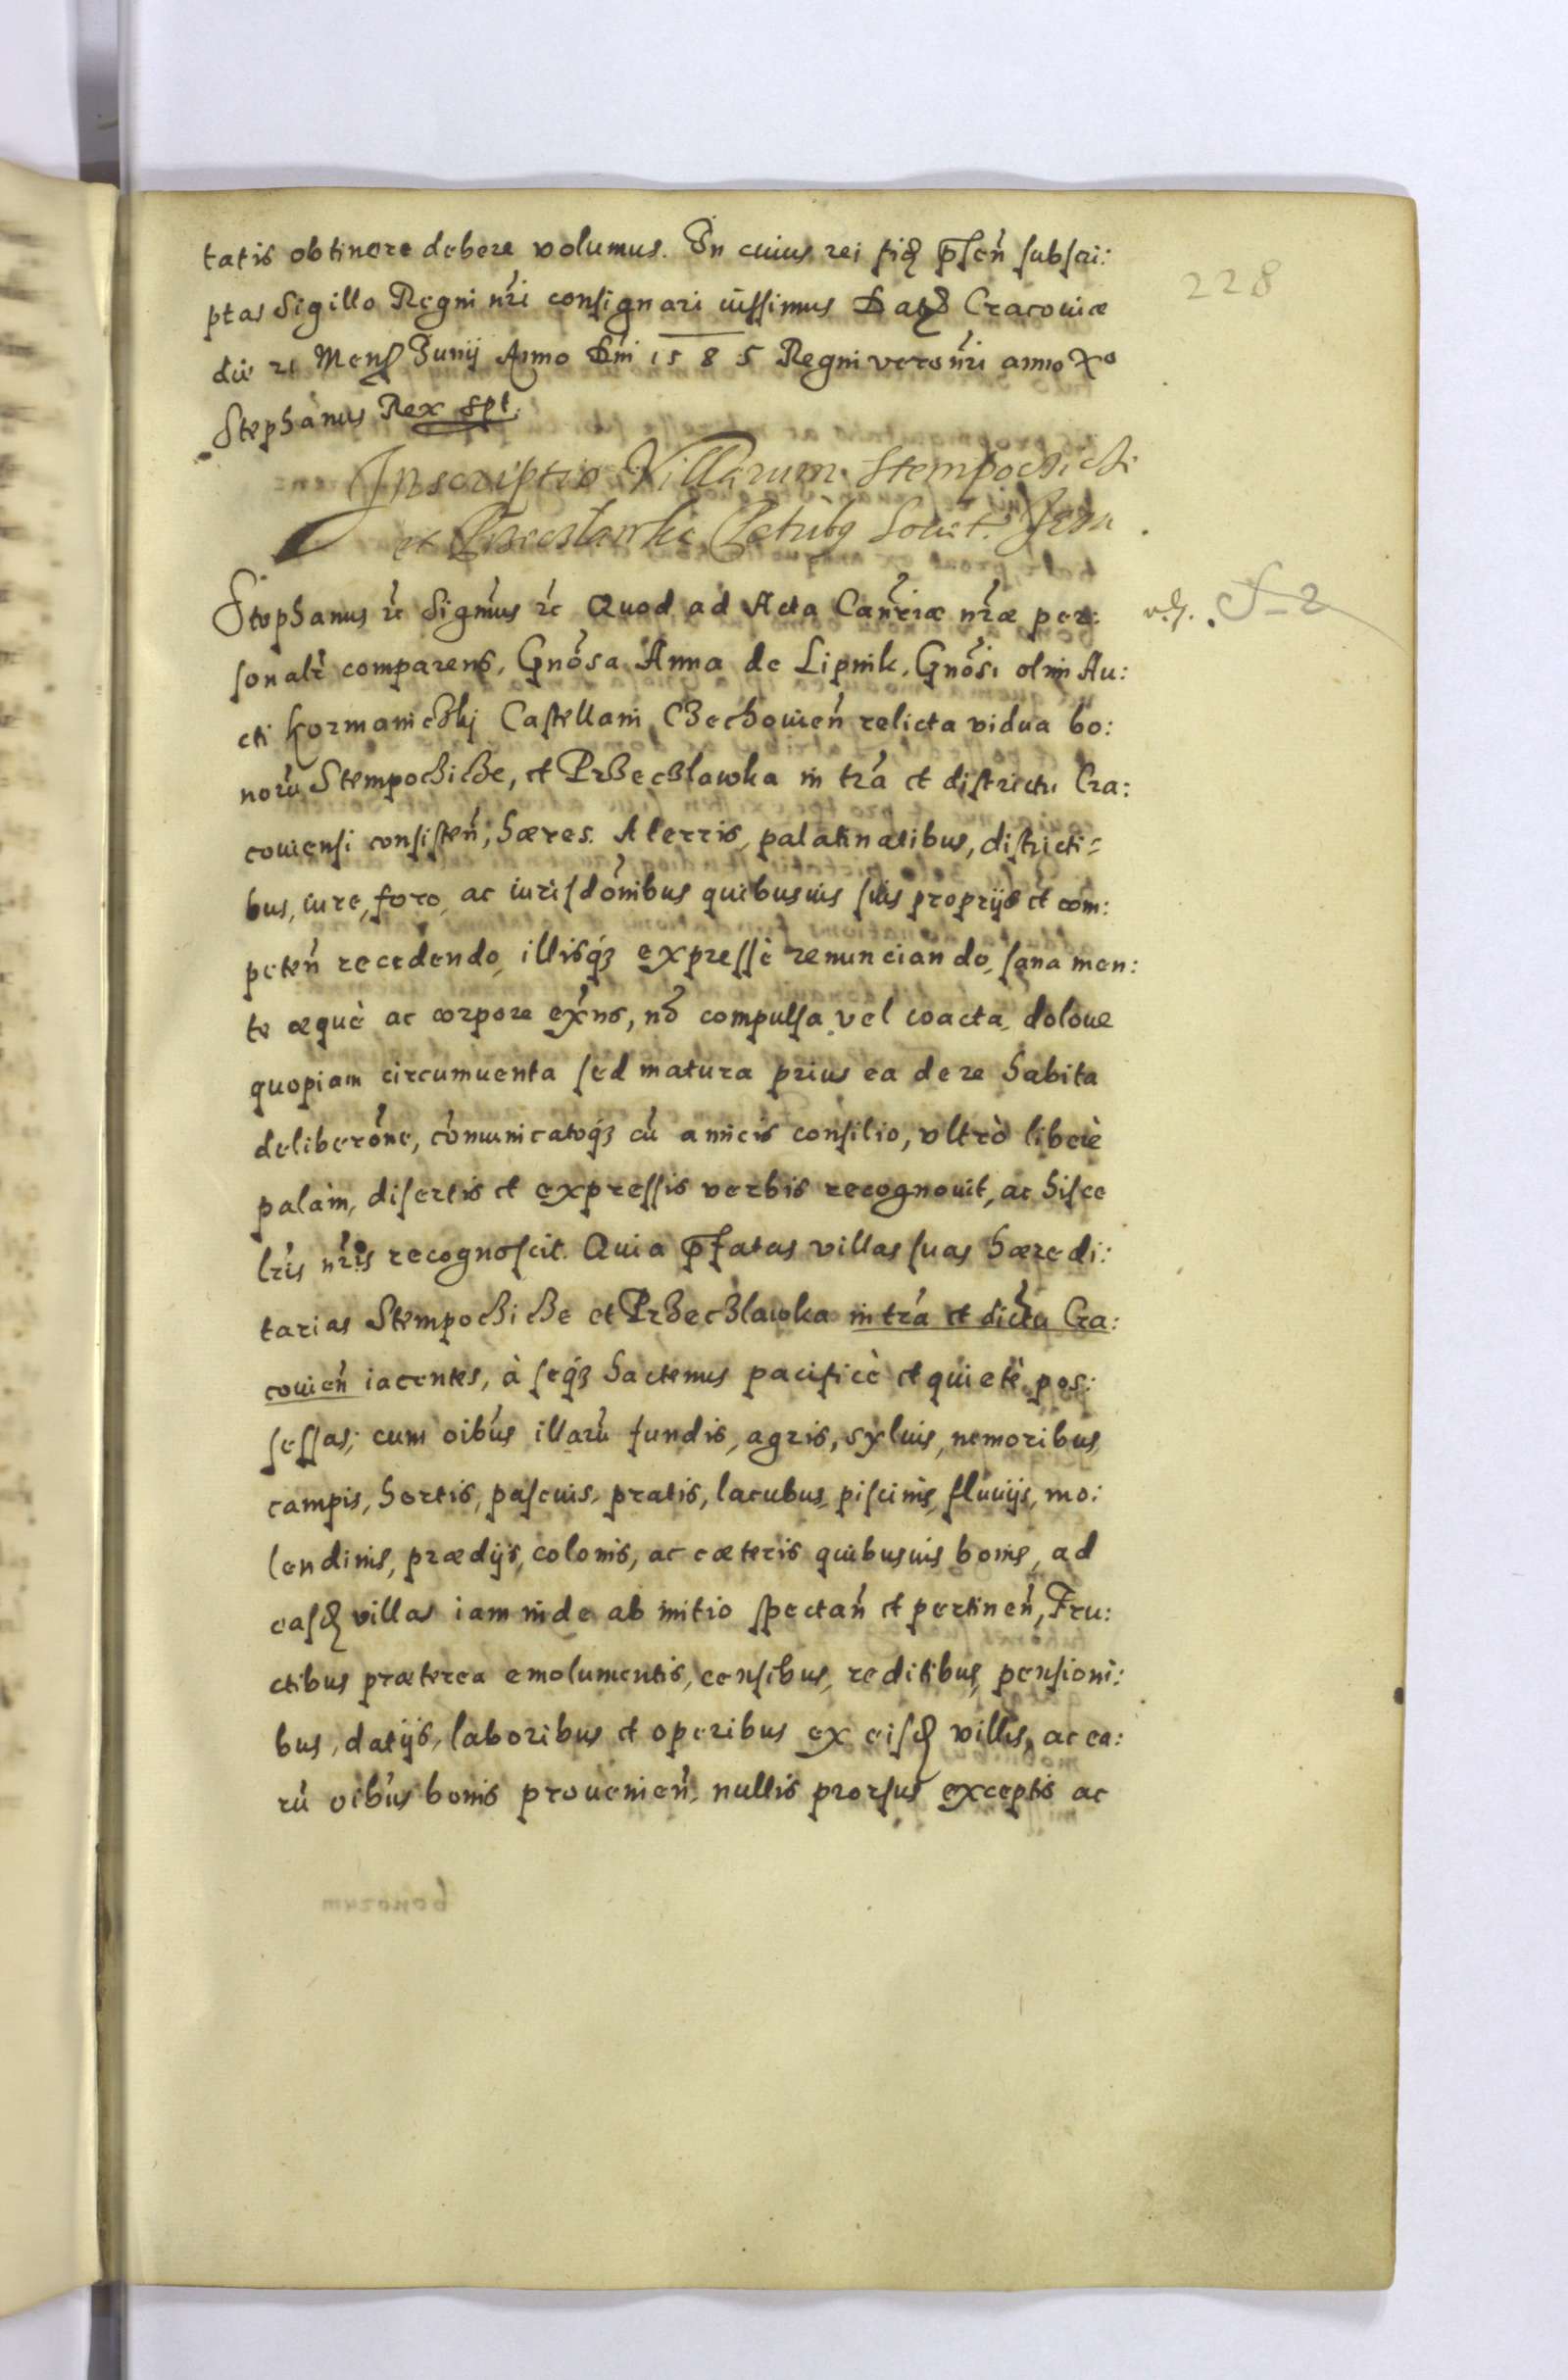 228
tatis obtinere debere volumus. In cuius rei fid p̄sen̄ subscri:
ptas Sigillo Regni nr̄i consignari iussimus Dat Cracoviæ
die 21 Mens Junij Anno Dni 1585 Regni vero nr̄i anno Xº
Stephanus Rex spt.
Inscriptio Villarum Stempochichi
et Patribq Societ. Jesu
Stephanus rc Signm̄us rc Quod ad Acta Can̄riæ nr̄æ per:
sonalr̄ comparens, Gnōsa Anna de Lipnik, Gnōsi olim Au:
cti Kormaniczkj Castellani Czechovien̄ relicta vidua bo:
norū Stempochicze, et Przeczlawka in trā et districtu Cra:
coviensi consisten̄, hæres. A terris, palatinatibus, districti=
bus, iure, foro, ac iurisdōnibus quibusvis suis proprijs et com:
peten̄ recedendo, illisqꝫ expressè renunciando, sana men:
te æquè ac corpore exn̄s, nō compulsa vel coacta, dolove
quopiam circumventa sed matura prius ea de re habita
deliberōne, cōmunicatoqꝫ cū amicis consilio, vltrò liberè
palàm, disertis et expressis verbis recognovit, ac hisce
lr̄is nr̄is recognoscit. Quia p̄fatas villas suas hæredi:
tarias Stempochicze et Przeczlawka in trā et dictu Cra:
covien̄ iacentes, à seqꝫ hactenus pacificè et quietè pos:
sessas; cum oibūs illarū fundis, agris, syluis, nemoribus
campis, hortis, pascuis, pratis, lacubus, piscinis, fluvijs, mo:
lendinis, prædijs, colonis, ac cæteris quibusvis bonis, ad
easd villas iam inde ab initio spectan̄ et pertinen̄, Fru:
ctibus præterea emolumentis, censibus, reditibus, pensioni:
bus, datijs, laboribus et operibus ex eisd villis, ac ea:
rū oibūs bonis provenien̄, nullis prorsus exceptis ac